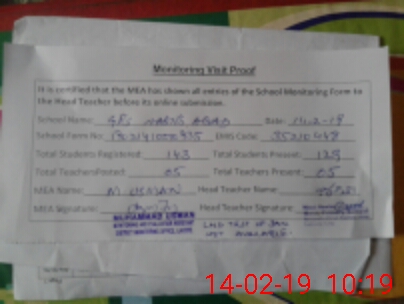 Monitoring Visit Proof
It is certified that the MEA has shown all entries of the School Monitoring Form to
the Head Teacher before its online submission.
School Name: GPS HABIB ABAD Date: 14-2-19
School Form No: EMIS Code: 35210448
Total Students Registered: 143 Total Students Present: 129
Total Teachers Posted: 05 Total Teachers Present: 05
MEA Name: M USMAN Head Teacher Name:
MEA Signature: Head Teacher Signature:
MUHAMMAD USMAN
MONITORING AND EVALUATION ASSISTANT
DISTRICT MONITORING OFFICE, LAHORE
LND TEST OF JAN
NOT AVAILABLE.
14-02-19 10:19